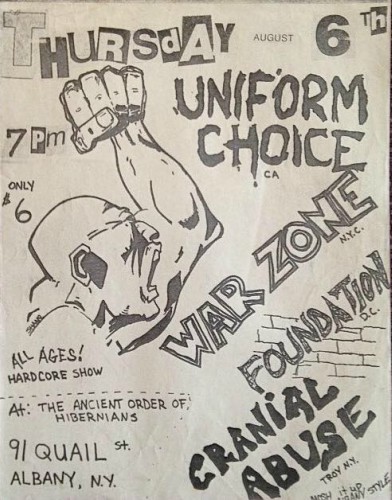 THURSDAY AUGUST 6TH
7 Pm
ONLY
$6
UNIFORM
CHOICE
CA
WAR ZONE
N.Y.C.
FOUNDATION
D.C.
CRANIAL
ABUSE
TROY N.Y.
MOSH it up
ALBANY STYLE
ALL AGES!
HARDCORE SHOW
At: THE ANCIENT ORDER OF
HIBERNIANS
91 QUAIL St.
ALBANY, N.Y.